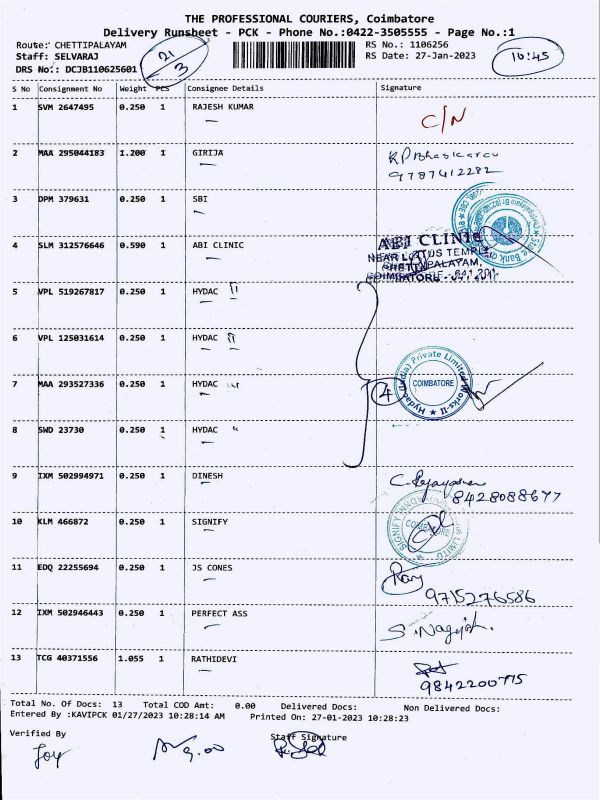 THE PROFESSIONAL COURIERS, Coimbatore
Delivery Runsheet - PCK - Phone No.:0422-3505555 - Page No.:1
Route: CHETTIPALAYAM RS No.: 1106256
Staff: SELVARAJ RS Date: 27-Jan-2023
DRS No.: DCJB110625601
21/3
10:45
S No Consignment No Weight PCS Consignee Details Signature
1 SVM 2647495 0.250 1 RAJESH KUMAR C/N
2 MAA 295044183 1.200 1 GIRIJA
9787412282
3 DPM 379631 0.250 1 SBI
4 SLM 312576646 0.590 1 ABI CLINIC
ABI CLINIC
NEAR LOTUS TEMPLE,
CHETTIPALAYAM,
COIMBATORE
5 VPL 519267817 0.250 1 HYDAC II
6 VPL 125031614 0.250 1 HYDAC II
7 MAA 293527336 0.250 1 HYDAC
4
Hydac (India) Private Limited Works-II
COIMBATORE
8 SWD 23730 0.250 1 HYDAC "
9 IXM 502994971 0.250 1 DINESH
8428088677
10 KLM 466872 0.250 1 SIGNIFY
COIMBATORE
11 EDQ 22255694 0.250 1 JS CONES
9715276586
12 IXM 502946443 0.250 1 PERFECT ASS
13 TCG 40371556 1.055 1 RATHIDEVI
9842200775
Total No. Of Docs: 13 Total COD Amt: 0.00 Delivered Docs: Non Delivered Docs:
Entered By :KAVIPCK 01/27/2023 10:28:14 AM Printed On: 27-01-2023 10:28:23
Verified By Staff Signature
Joy 9.00